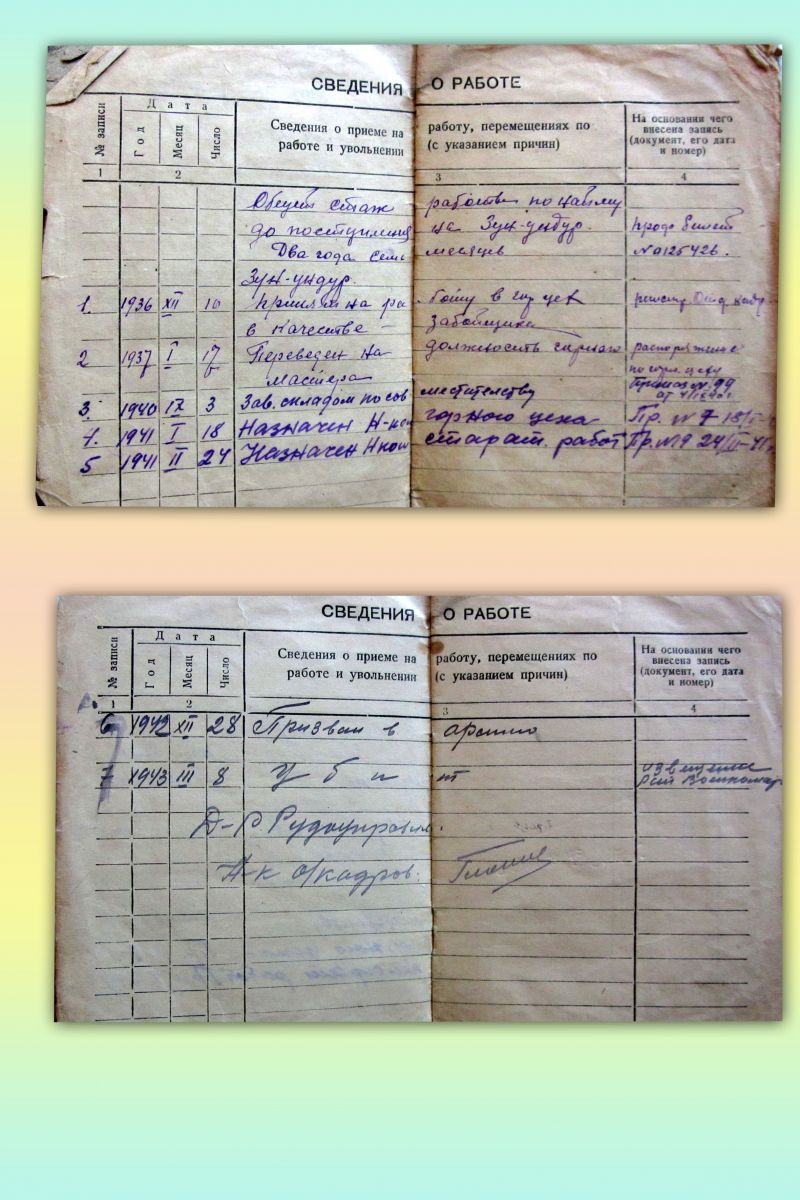 СВЕДЕНИЯ О РАБОТЕ
№ записи
Дата
Год
Месяц
Число
Сведения о приеме на работу, перемещениях по
работе и увольнении (с указанием причин)
На основании чего
внесена запись
(документ, его дата
и номер)
1 2 3 4
Общий стаж работы по найму
до поступления на Зун-ундур. профбилет
Два года семь месяцев №0125426.
Зун-ундур.
1. 1936 XII 10 Принят на работу в гор цех
в качестве - забойщика
2 1937 I 17 Переведен на должность горного распоряжение
мастера по горн. цеху
3. 1940 IX 3 Зав. складом по совместительству Приказ №99
4. 1941 I 18 Назначен Н-ком горного цеха Пр. №7 18/I
5 1941 II 24 Назначен Нком старат. работ Пр. №19 24/II-41г.
СВЕДЕНИЯ О РАБОТЕ
№ записи
Дата
Год
Месяц
Число
Сведения о приеме на работу, перемещениях по
работе и увольнении (с указанием причин)
На основании чего
внесена запись
(документ, его дата
и номер)
1 2 3 4
6 1942 XII 28 Призван в армию
7 1943 III 8 Убит извещение
Рай Военкомат
Д-р Рудоуправлен.
Н-к о/кадров.